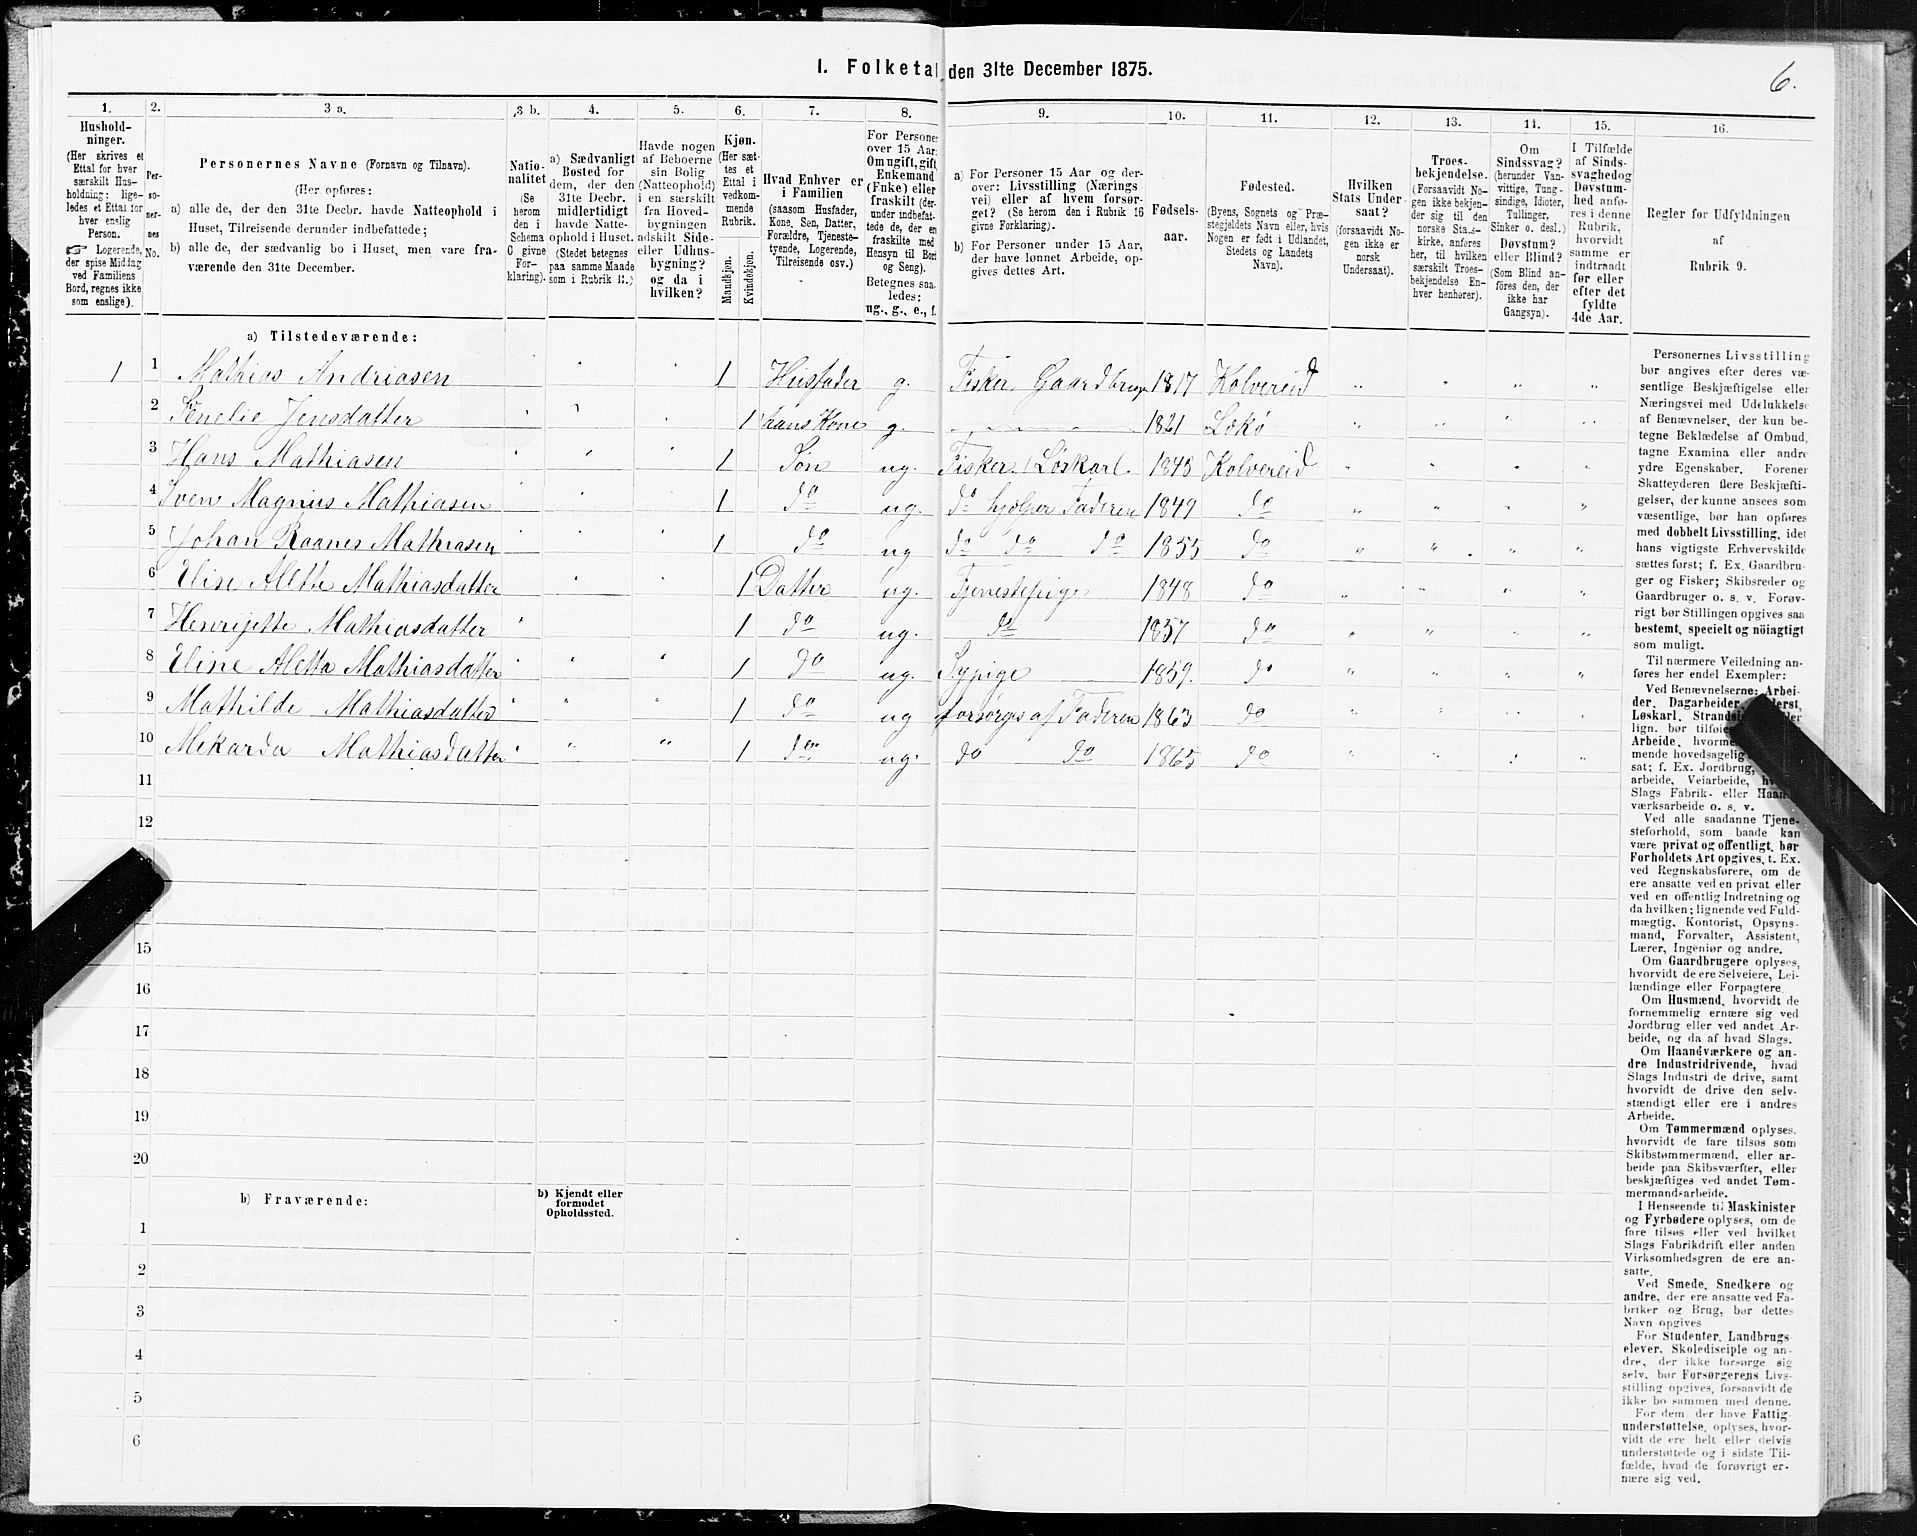 I. Folketal den 31te December 1875.
6.
1. 2. 3 a. 3 b. 4. 5. 6. 7. 8. 9. 10. 11. 12. 13. 14. 15. 16.
Hushold-
ninger.
(Her skrives et
Ettal for hver
særskilt Hus-
holdning; lige-
ledes et Ettal for
hver enslig
Person.
☞ Logerende,
der spise Middag
ved Familiens
Bord, regnes ikke
som enslige).
Per-
so-
ner-
nes
No.
Personernes Navne (Fornavn og Tilnavn).
(Her opføres:
a) alle de, der den 31te Decbr. havde Natteophold i
Huset, Tilreisende derunder indbefattede;
b) alle de, der sædvanlig bo i Huset, men vare fra-
værende den 31te December.
Natio-
nalitet
(Se
herom
den i
Schema
G givne
For-
klaring).
a) Sædvanligt
Bosted for
dem, der den
31te Decbr.
midlertidigt
havde Natte-
ophold i Huset.
(Stedet betegnes
paa samme Maade
som i Rubrik 11.)
Havde nogen
af Beboerne
sin Bolig
(Natteophold)
i en særskilt
fra Hoved-
bygningen
adskilt Side-
eller Udhus-
bygning?
og da i
hvilken?
Kjøn.
(Her sæt-
tes et
Ettal i
vedkom-
mende
Rubrik.
Mandkjøn.
Kvindekjøn.
Hvad Enhver er
i Familien
(saasom Husfader,
Kone, Søn, Datter,
Forældre, Tjeneste-
tyende, Logerende,
Tilreisende osv.)
For Personer
over 15 Aar:
Om ugift, gift,
Enkemand
(Enke) eller
fraskilt (der-
under indbefat-
tede de, der ere
fraskilte med
Hensyn til Bord
og Seng).
Betegnes saa-
ledes:
ug., g., e., f.
a) For Personer 15 Aar og der-
over: Livsstilling (Nærings-
vei) eller af hvem forsør-
get? (Se herom den i Rubrik 16
givne Forklaring).
b) For Personer under 15 Aar,
der have lønnet Arbeide, op-
gives dettes Art.
Fødsels-
aar.
Fødested.
(Byens, Sognets og Præ-
stegjeldets Navn eller, hvis
Nogen er født i Udlandet,
Stedets og Landets
Navn).
Hvilken
Stats Under-
saat?
(forsaavidt No-
gen ikke er
norsk
Undersaat).
Troes-
bekjendelse.
(Forsaavidt No-
gen ikke bekjen-
der sig til den
norske Stats-
kirke, anføres
her, til hvilken
særskilt Troes-
bekjendelse En-
hver henhører).
Om
Sindssvag?
(herunder Van-
vittige, Tung-
sindige, Idioter,
Tullinger,
Sinker o. desl.)
Døvstum?
eller Blind?
(Som Blind an-
føres den, der
ikke har
Gangsyn).
I Tilfælde
af Sinds-
svaghed og
Døvstum-
hed anfø-
res i denne
Rubrik,
hvorvidt
samme er
indtraadt
før eller
efter det
fyldte
4de Aar.
Regler for Udfyldningen
af
Rubrik 9.
a) Tilstedeværende:
1 1 Mathias Andriasen " " " 1 Husfader g. Fisker Gaardbruger 1817 Kolvereid " " " "
2 Jensdatter " " " 1 hans Kone g. 1821 Lekø " " " "
3 Hans Mathiasen " " " 1 Søn ug. Fisker Løskarl. 1845 Kolvereid " " " "
4 Sven Magnus Mathiasen " " " 1 do ug. do hjælper Faderen 1849 do " " " "
5 Johan Raanes Mathiasen " " " 1 do ug do do do 1855 do " " " "
6 Elise Alette Mathiasdatter " " " 1 Datter ug. Tjenestepige 1848 do " " " "
7 Henrijette Mathiasdatter " 1 do ug. do 1857 do " " " "
8 Eline Aletta Mathiasdatter " " " 1 do ug. Sypige 1859. do " " " "
9 Mathilde Mathiasdatter " " " 1 do ug forsørges af Faderen 1863 do " " " "
10 Mekarda Mathiasdatter " " " 1 do ug. do do 1865 do " " " "
11
12
15
16
17
18
19
20
b) Fraværende:
b) Kjendt eller
formodet
Opholdssted.
1
2
3
4
5
6
Personernes Livsstilling
bør angives efter deres væ-
sentlige Beskjæftigelse eller
Næringsvei med Udelukkelse
af Benævnelser, der kun be-
tegne Beklædelse af Ombud,
tagne Examina eller andre
ydre Egenskaber. Forener
Skatteyderen flere Beskjæfti-
gelser, der kunne ansees som
væsentlige, bør han opføres
med dobbelt Livsstilling, idet
hans vigtigste Erhvervskilde
sættes først; f. Ex. Gaardbru-
ger og Fisker; Skibsreder og
Gaardbruger o. s. v. Forøv-
rigt bør Stillingen opgives saa
bestemt, specielt og nöiagtigt
som muligt.
Til nærmere Veiledning an-
føres her endel Exempler:
Ved Benævnelserne: Arbei-
der, Dagarbeider,
Løskarl,
lign. bør tilføies
Arbeide,
mende hovedsagelig
sat; f. Ex. Jordbrug,
arbeide, Veiarbeide,
Slags Fabrik- eller Haand-
værksarbeide o. s. v.
Ved alle saadanne Tjene-
steforhold, som baade kan
være privat og offentligt, bør
Forholdets Art opgives, t. Ex.
ved Regnskabsførere, om de
ere ansatte ved en privat eller
ved en offentlig Indretning og
da hvilken; lignende ved Fuld-
mægtig, Kontorist, Opsyns-
mand, Forvalter, Assistent,
Lærer, Ingeniør og andre.
Om Gaardbrugere oplyses,
hvorvidt de ere Selveiere, Lei-
lændinge eller Forpagtere.
Om Husmænd, hvorvidt de
fornemmelig ernære sig ved
Jordbrug eller ved andet Ar-
beide, og da af hvad Slags.
Om Haandværkere og an-
dre Industridrivende, hvad
Slags Industri de drive, samt
hvorvidt de drive den selv-
stændigt eller ere i andres
Arbeide.
Om Tømmermænd oplyses,
hvorvidt de fare tilsøs som
Skibstømmermænd, eller ar-
beide paa Skibsværfter, eller
beskjæftiges ved andet Tøm-
mermandsarbeide.
I Henseende til Maskinister
og Fyrbødere oplyses, om de
fare tilsøs eller ved hvilket
Slags Fabrikdrift eller anden
Virksomhedsgren de ere an-
satte.
Ved Smede, Snedkere og
andre, der ere ansatte ved Fa-
briker og Brug, bør dettes
Navn opgives
For Studenter, Landbrugs-
elever, Skoledisciple og an-
dre, der ikke forsørge sig
selv, bør Forsørgerens Livs-
stilling opgives, forsaavidt de
ikke bo sammen med denne.
For dem, der have Fattig-
understøttelse, oplyses, hvor-
vidt de ere helt eller delvis
understøttede og i sidste Til-
fælde, hvad de forøvrigt er-
nære sig ved.